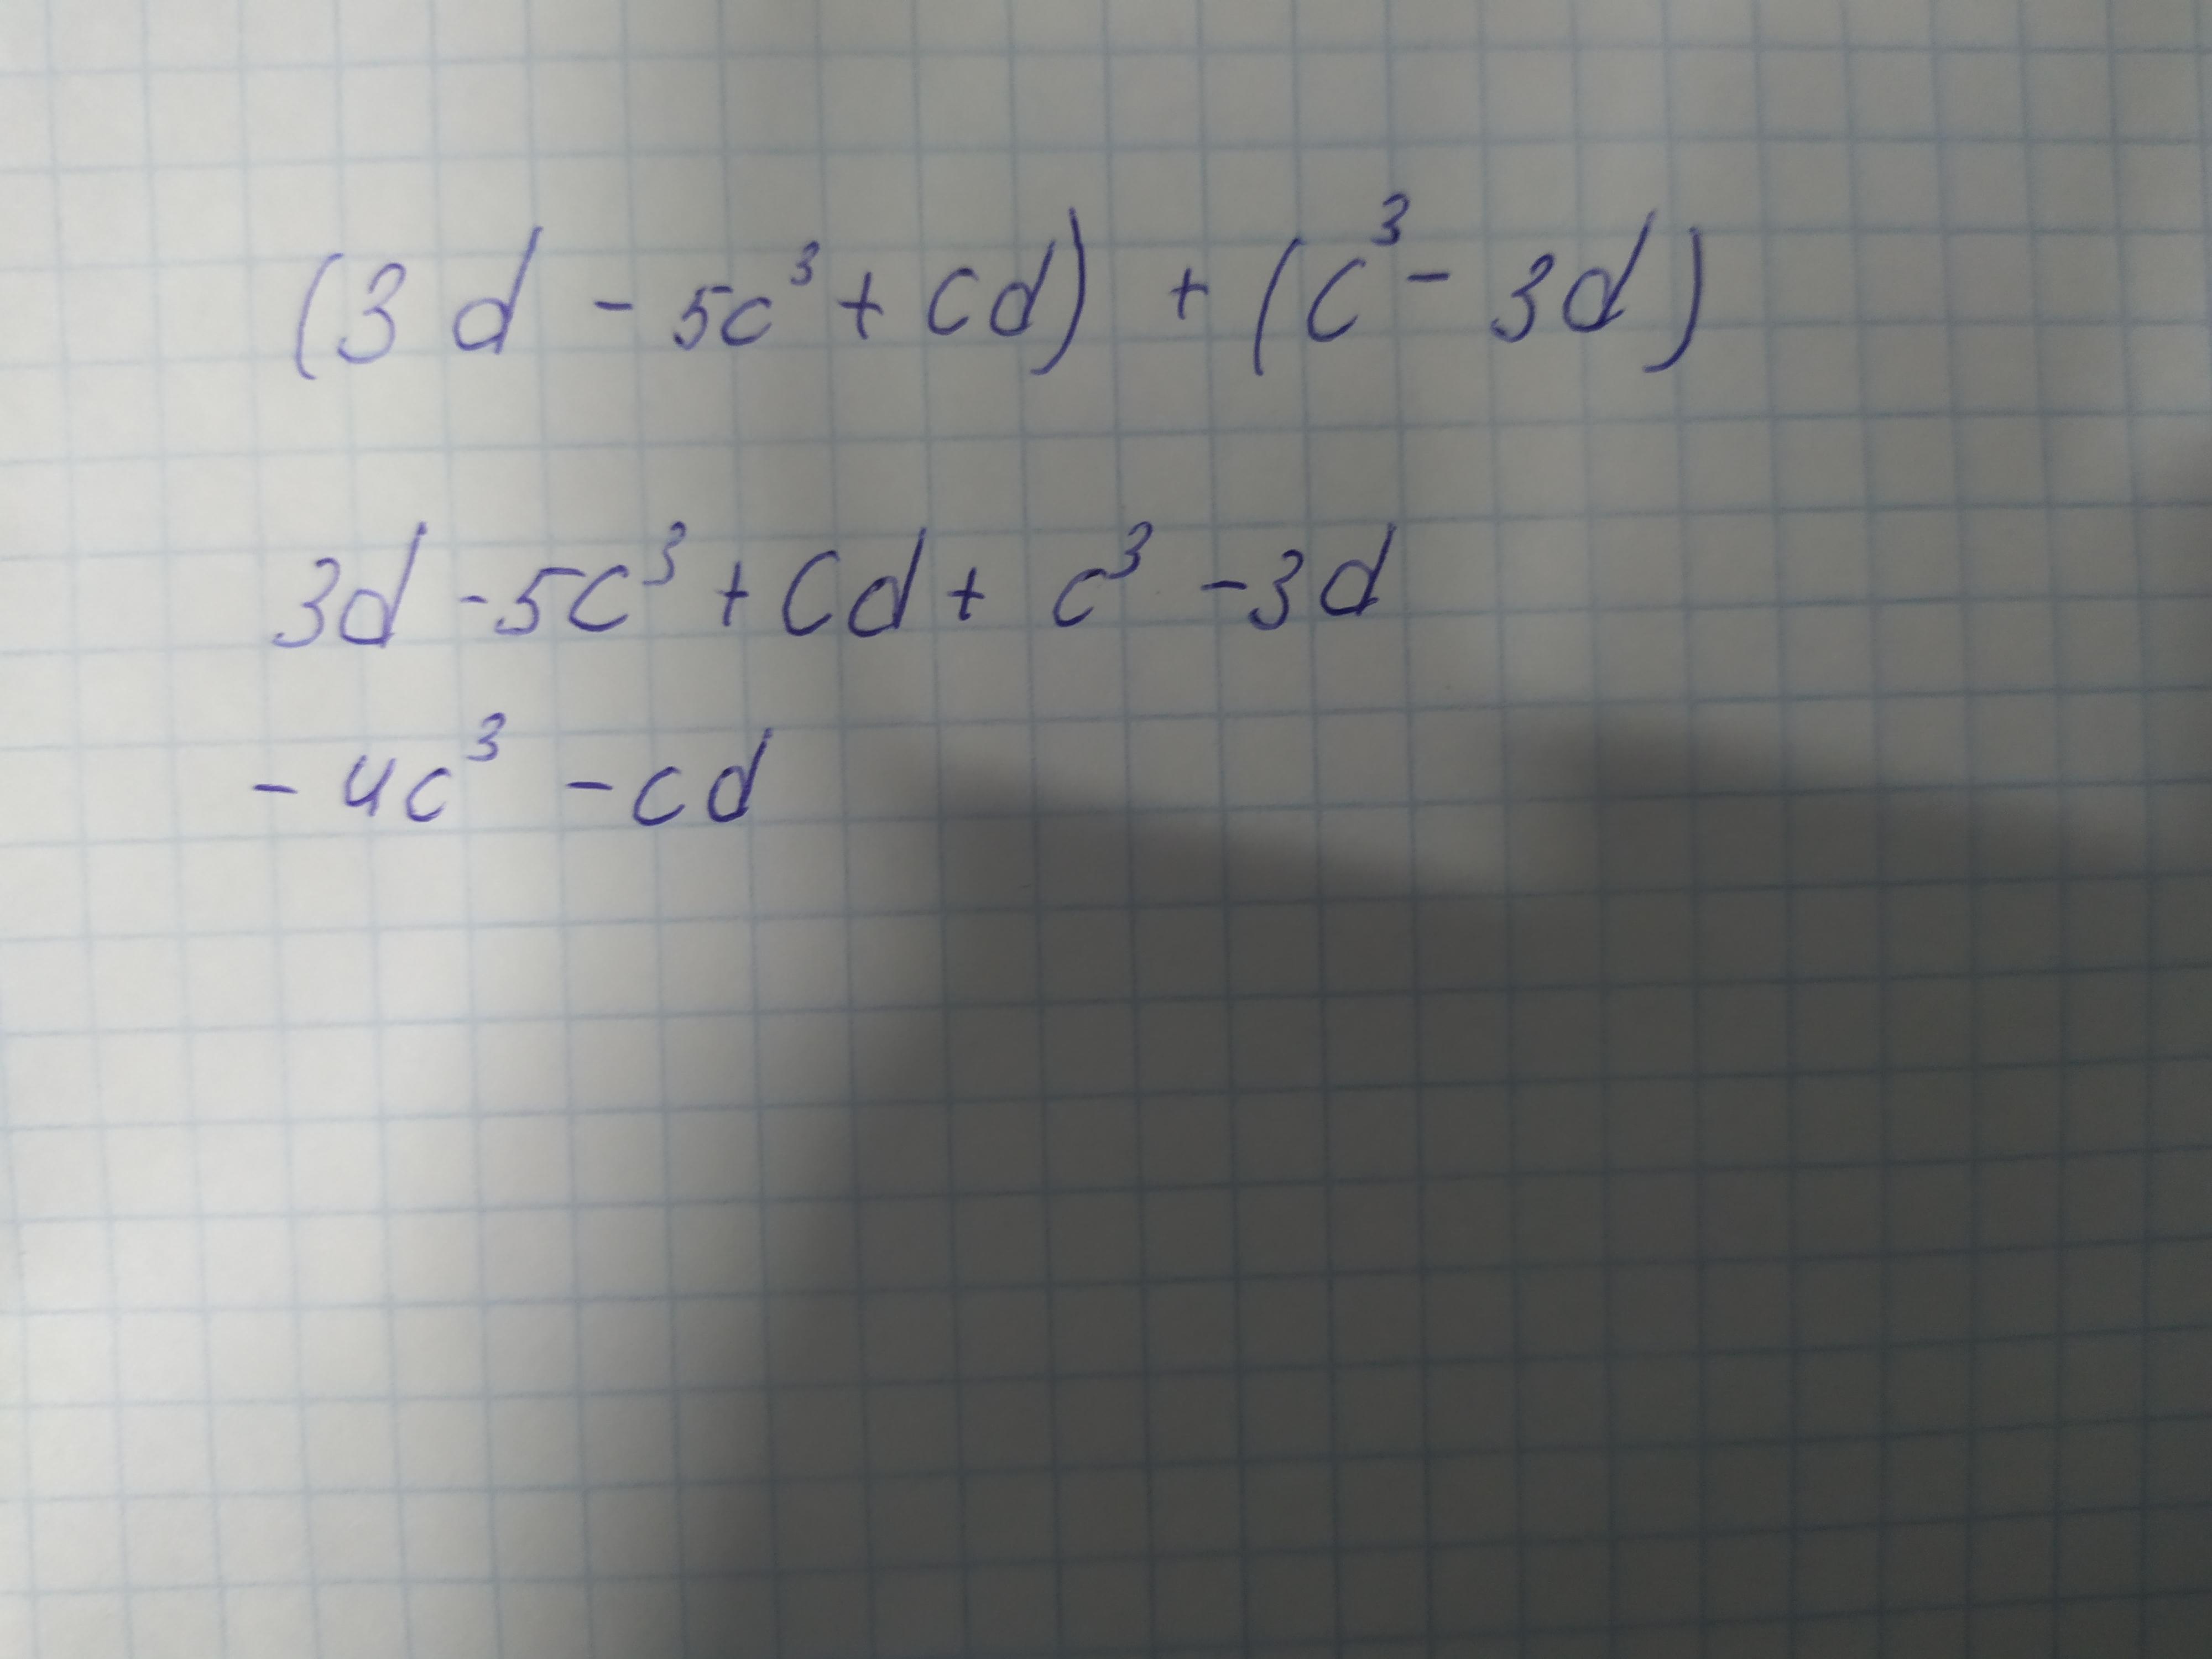 (3d - 5c³ + cd) + (c³ - 3d)
3d - 5c³ + cd + c³ - 3d
- 4c³ - cd